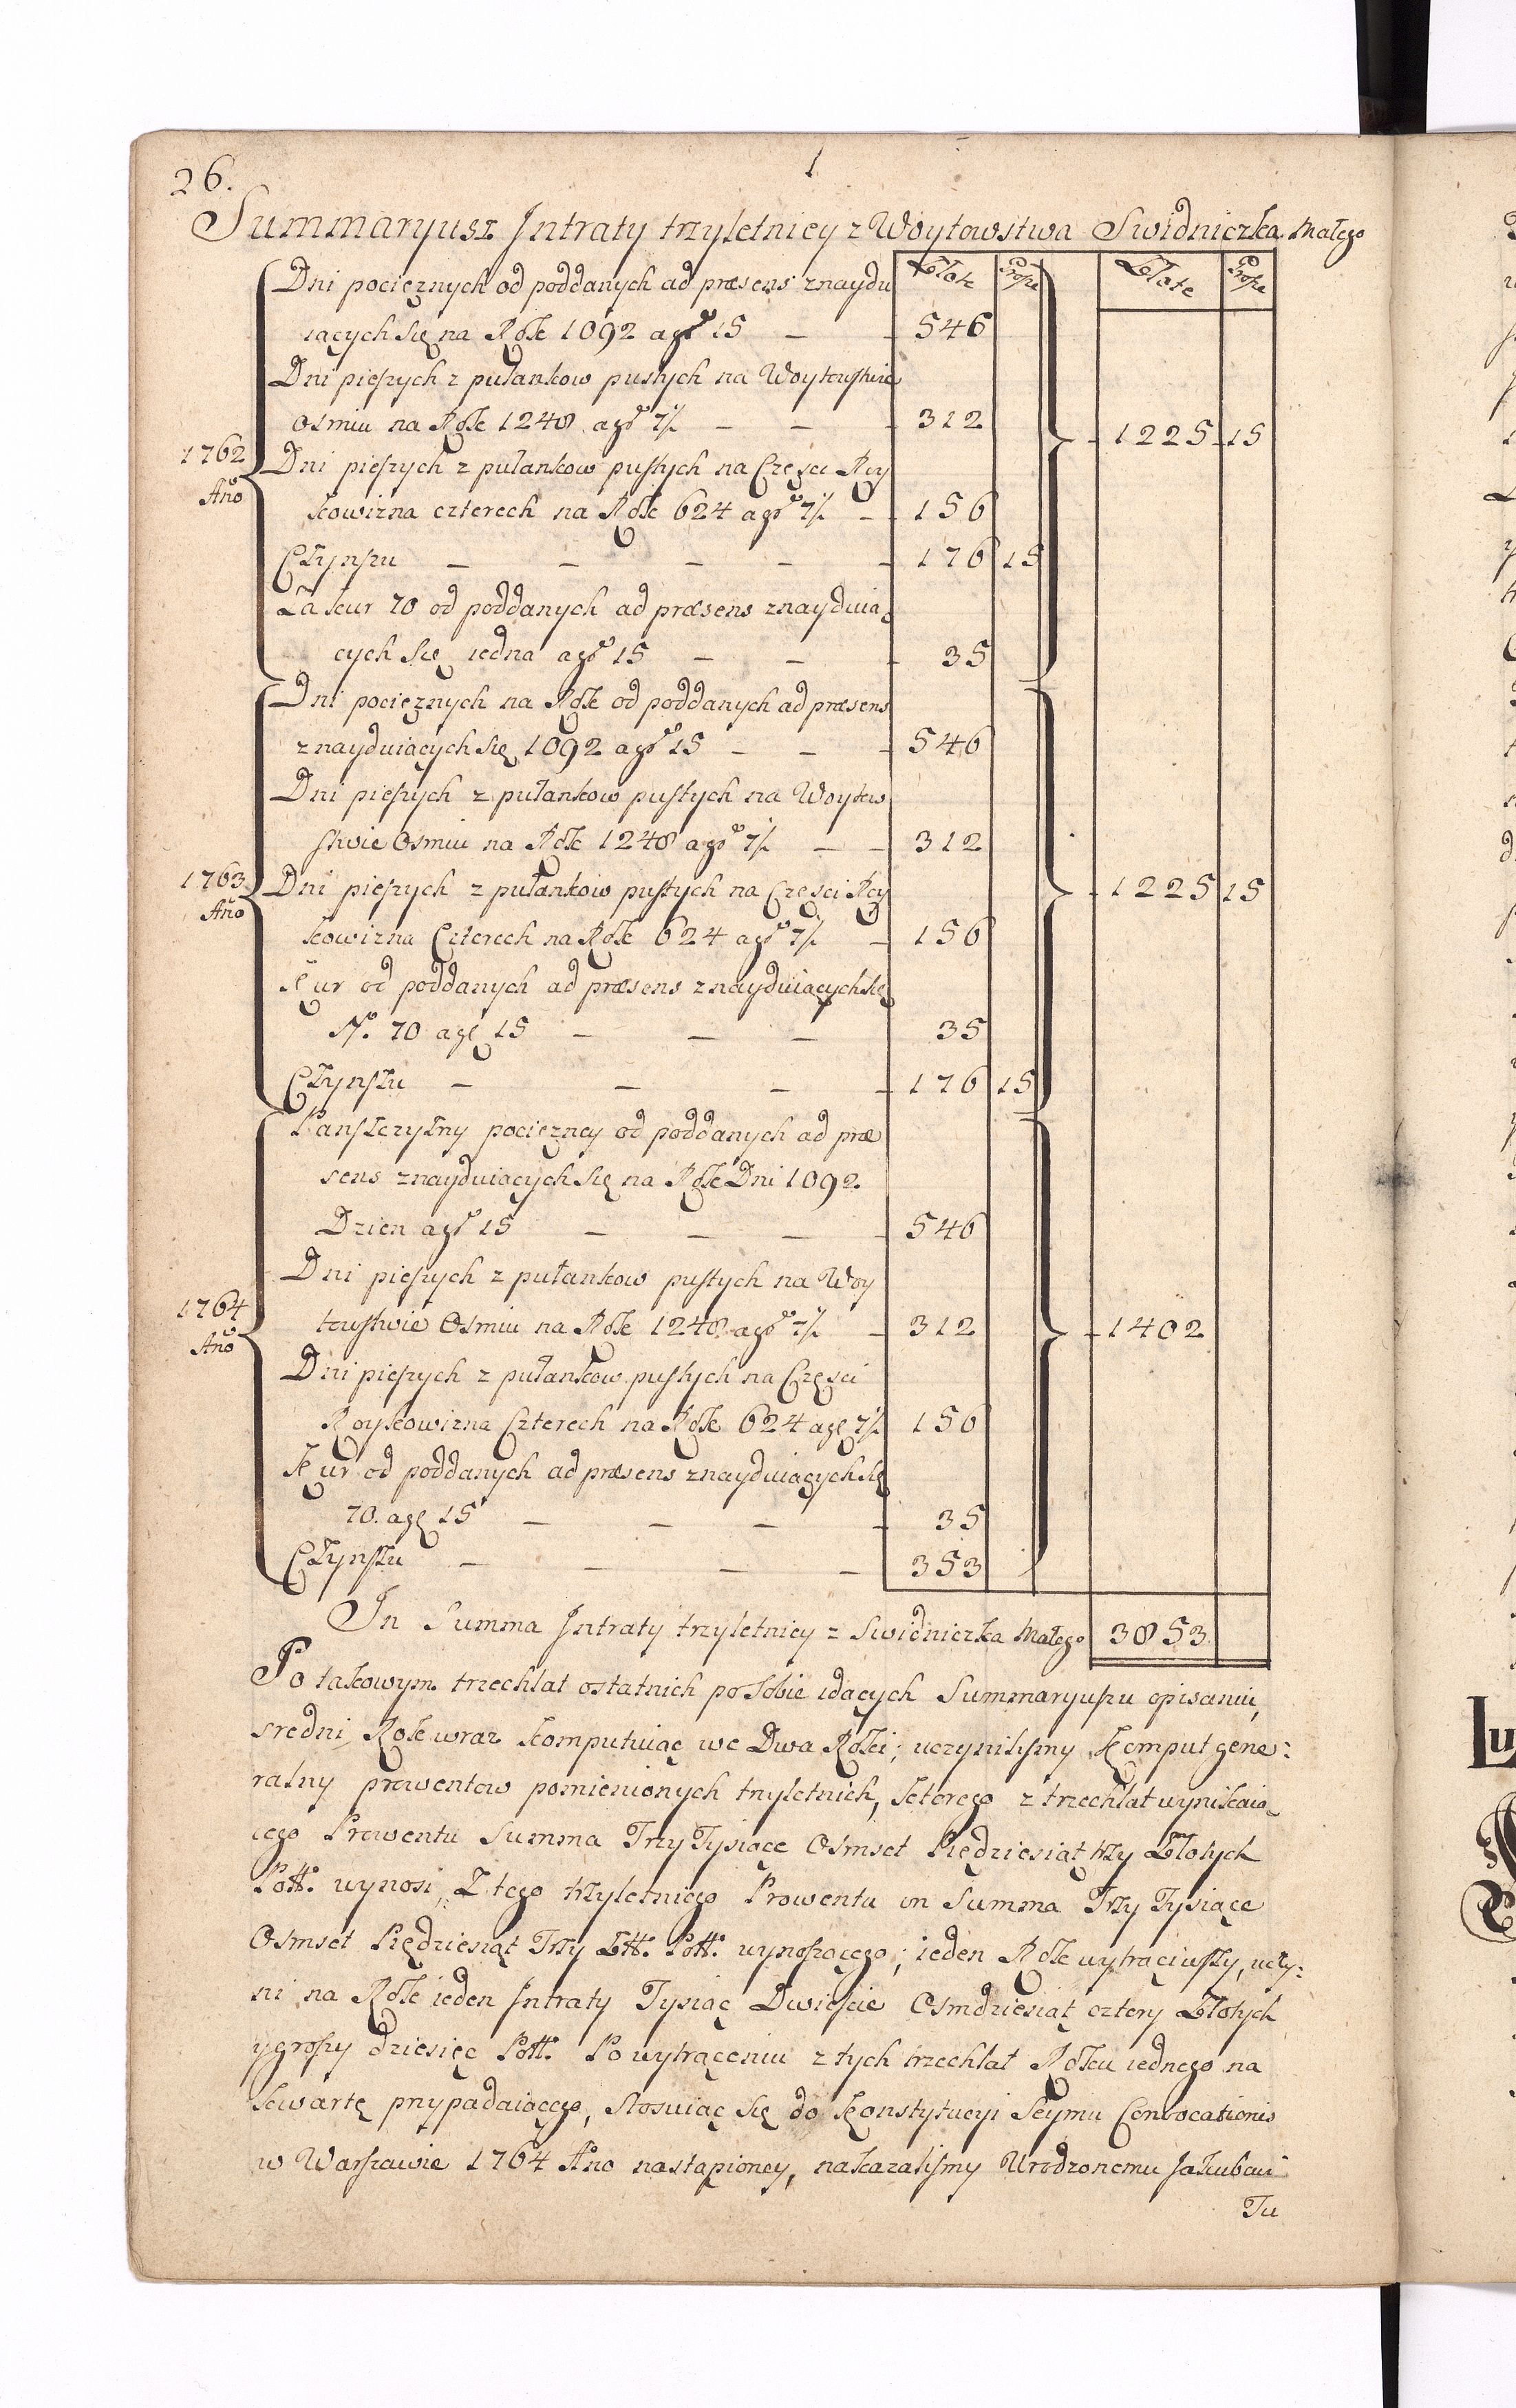 26.
1
Summaryusz Intraty trzyletniey z Woytowstwa Swidniczka Małego
Złote Grosze Złote Grosze
Dni pociężnych od poddanych ad præsens znaydu
iących się na Rok 1092 a gr 15 — 546
Dni pieszych z pułankow pustych na Woytowstwie
osmiu na Rok 1248 a gr 7½ — — 312
1762 Año
1225 15
Dni pieszych z pułankow pustych na Częsci Roy
kowizna czterech na Rok 624 a gr 7½ — 156
Czynszu — — — — — 176 15
Za kur 70 od poddanych ad præsens znayduią
cych się iedna a gr 15 — — 35
Dni pociężnych na Rok od poddanych ad præsens
znayduiących się 1092 a gr 15 — — 546
Dni pieszych z pułankow pustych na Woytow
stwie Osmiu na Rok 1248 a gr 7½ — — 312
1763 Año
1225 15
Dni pieszych z pułankow pustych na Częsci Roy
kowizna Czterech na Rok 624 a gr 7½ — 156
Kur od poddanych ad præsens znayduiących się
No. 70 a gr 15 — — — 35
Czynszu — — — — 176 15
Panszczyzny pociężney od poddanych ad præ
sens znayduiących się na Rok Dni 1092
Dzien a gr 15 — — — 546
Dni pieszych z pułankow pustych na Woy
towstwie Osmiu na Rok 1248 a gr 7½ — 312
1764 Año
1402
Dni pieszych z pułankow pustych na Częsci
Roykowizna Czterech na Rok 624 a gr 7½ 156
Kur od poddanych ad præsens znayduiących się
70. a gr 15 — — — — 35
Czynszu — — — — 353
In Summa Intraty trzyletniey z Swidniczka Małego 3853
Po takowym trzechlat ostatnich po sobie idących Summaryuszu opisaniu,
sredni Rok wraz komputuiąc we Dwa Roki; uczynilismy Komput gene:
ralny prowentow pomienionych trzyletnich, ktorego z trzechlat wynikaią
cego Prowentu Summa Trzy Tysiące Osmset Piędziesiąt trzy Złotych
Poll: wynosi, Z tego trzyletniego Prowentu in Summa Trzy Tysiące
Osmset Piędziesiąt Trzy Zll: Poll: wynoszącego; ieden Rok wytrąciwszy, uczy:
ni na Rok ieden Intraty Tysiąc Dwiescie Osmdziesiąt cztery Złotych
y groszy dziesięc Poll: Po wytrąceniu z tych trzechlat Roku iednego na
kwartę przypadaiącego, stosuiąc się do Konstytucyi Seymu Convocationis
w Warszawie 1764 Año nastąpioney, nakazalismy Urodzonemu Jakubowi
Tu